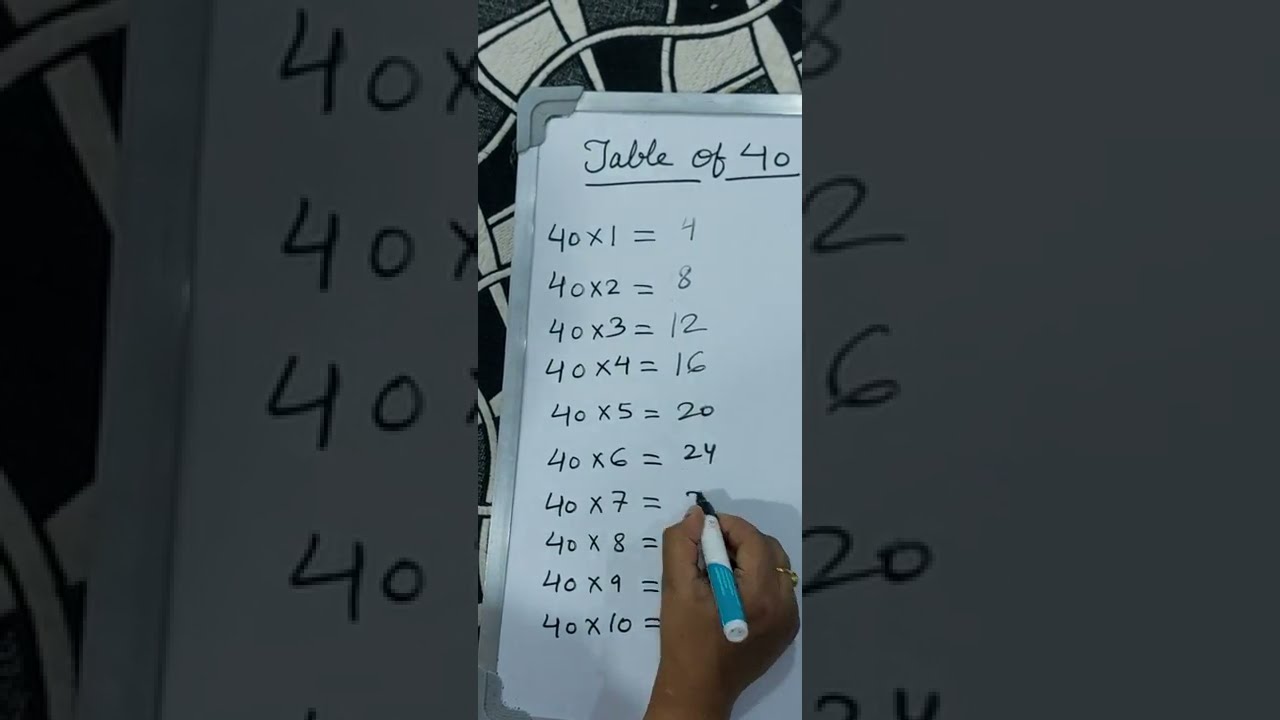 Table of 40
40 x 1 = 4
40 x 2 = 8
40 x 3 = 12
40 x 4 = 16
40 x 5 = 20
40 x 6 = 24
40 x 7 =
40 x 8 =
40 x 9 =
40 x 10 =